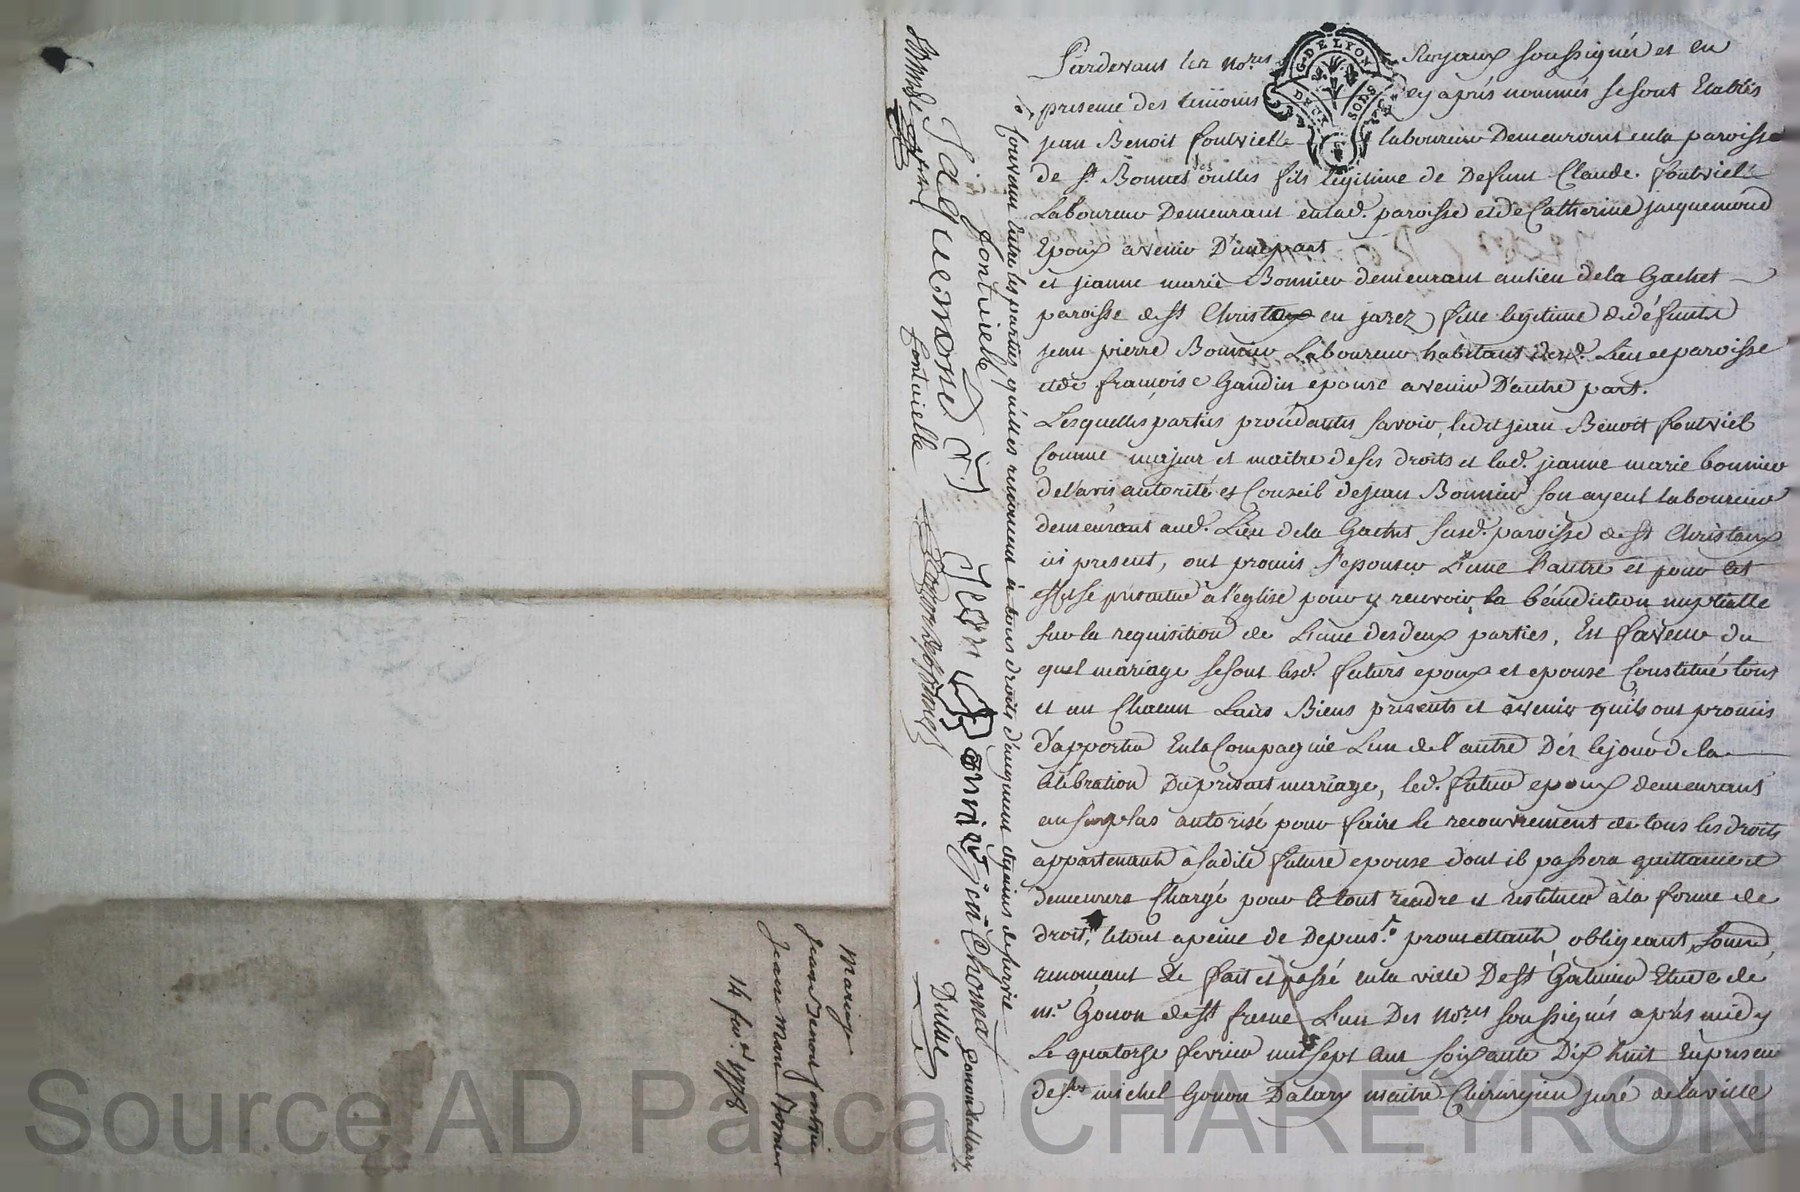 Pardevant les no.res Royaux soussignés et en
presence des temoins cy après nommés se sont Etablis
jean Benoit fontvielle laboureur Demeurant en la paroisse
de St Bonnet les oulles fils legitime de Defunt Claude fontvielle
Laboureur Demeurant en lad. paroisse et de Catherine jacquemond
Epoux avenir D'une part
et jeanne marie Bonnier demeurant au lieu de la Gachet
paroisse de St Christaux en jarez fille legitime de défunt
jean pierre Bonnier Laboureur habitant desd. Lieu et paroisse
et de françoise Gaudin epouse avenir D'autre part.
Lesquelles parties procedantes savoir, ledit jean Benoit fontviel
Comme majeur et maitre de ses droits et lad. jeanne marie bonnier
de l'avis autorité et Conseil de jean Bonnier son ayeul laboureur
demeurant aud. Lieu de la Gachet susd. paroisse de St Christaux
ici present, ont promis s'epouser L'une l'autre et pour cet
effet se presenter à l'eglise pour y recevoir la bénédiction nuptialle
sur la requisition de L'une des deux parties, En faveur du
quel mariage se sont lesd. futurs epoux et epouse Constitué tous
et un Chacun Leurs Biens présents et avenir qu'ils ont promis
d'apporter En la Compagnie L'un de l'autre Dès le jour de la
Célébration Du présent mariage, led. futur epoux demeurant
au surplus autorisé pour faire le recouvrement de tous les droits
appartenants à sadite future epouse dont il passera quittance et
demeurera Chargé pour le tout rendre et restituer à la forme de
droit, le tout a peine de Depens. promettants obligeants, soumt.
renonçant &c fait et passé en la ville De St Galmier Etude de
m.e Gonon de St fresne L'un Des no.res soussignés après midy
Le quatorze fevrier mil sept cent soixante Dix huit En presence
de s.r michel Gonon Dalary maitre Chirurgien juré de la ville
Convenu entre les parties qu'elles renoncent à tous droits d'augment et gains de survie
fontvielle
Jaquemond
Jean Bonnier
jean Chomat
gonondallary
fontvielle
Dulme
mariage
jean Benoit fontvie
jeanne marie Bonnier
14 fev.er 1778
Source AD Pacca CHAREYRON
G. DE LYON
DEUX SOLS